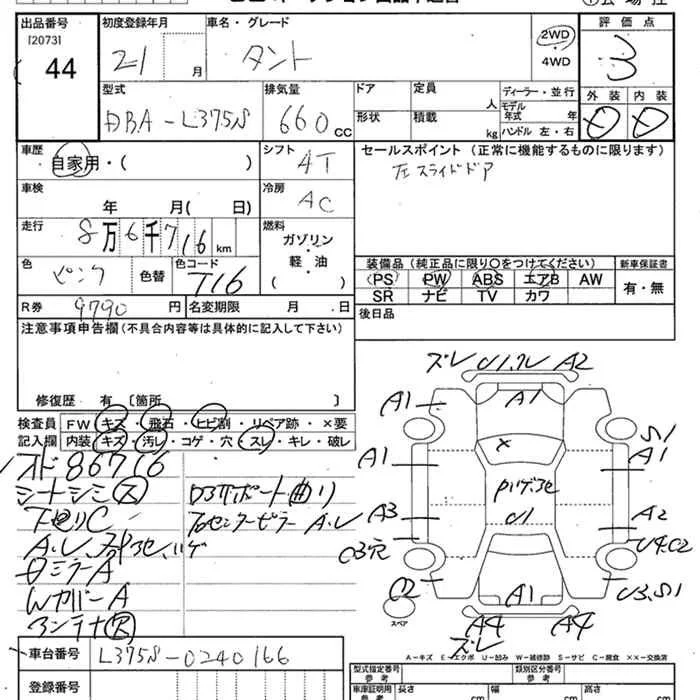 出品番号
[2073]
44
初度登録年月
21 月
車名・グレード
タント
2WD
4WD
評価点
3
外装 内装
型式
DBA-L375S
排気量
660 CC
ドア
形状
定員
人
積載
kg
ディーラー・並行
モデル年式 年
ハンドル 左・右
車歴
自家用・( )
シフト
4T
セールスポイント (正常に機能するものに限ります)
左スライドドア
車検
年 月( 日)
冷房
AC
走行
8万6千716 km
燃料
ガソリン
・
軽・油
( )
色
ピンク
色替
色コード
T16
装備品 (純正品に限り○をつけてください)
PS PW ABS エアB AW
SR ナビ TV カワ
新車保証書
有・無
R券
9790 円
名変期限 月 日
後日品
注意事項申告欄 (不具合内容等は具体的に記入して下さい)
修復歴 有 〔箇所 〕
検査員
記入欄
FW キズ・飛石・ヒビ割・リペア跡・×要
内装 キズ・汚レ・コゲ・穴・スレ・キレ・破レ
オド86716
シートシミ(ス)
下廻りC
A.U.
ミラーA
WカバーA
アンテナ(R)
サポート曲り
センターピラーA.U
ズレ U1.ワレ A2
A1 A1
S1
A1 A1
U1
A3 A2
C3穴 U4.C2
C2 A1 U3.S1
スペア
A4 A4
ズレ
A-キズ E-エクボ U-凹み W-補修跡 S-サビ C-腐食 ××-交換済
車台番号
L375S-0240166
登録番号
型式指定番号
参考
類別区分番号
参考
車庫証明用
参考
長さ cm
幅 cm
高さ cm